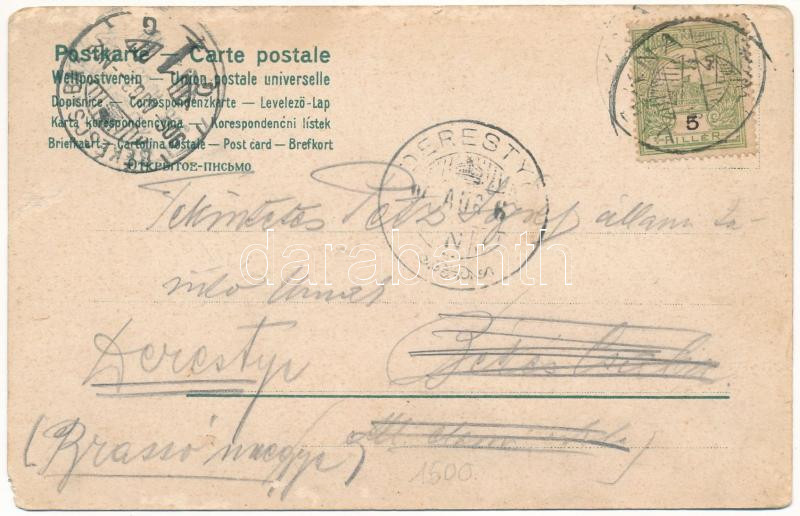 Postkarte — Carte postale
Weltpostverein — Union postale universelle
Dopisnice — Correspondenzkarte — Levelező-Lap
Karta korespondencyjna — Korespondenční lístek
Briefkaart — Cartolina postale — Post card — Brefkort
ОТКРЫТОЕ-ПИСЬМО
5
FILLÉR
DERESTYE
AUG
N
darabanth
Tekintetes Petz József állami ta-
nító Urnak
Derestye
Békés Csaba
(Brassó megye)
1500.